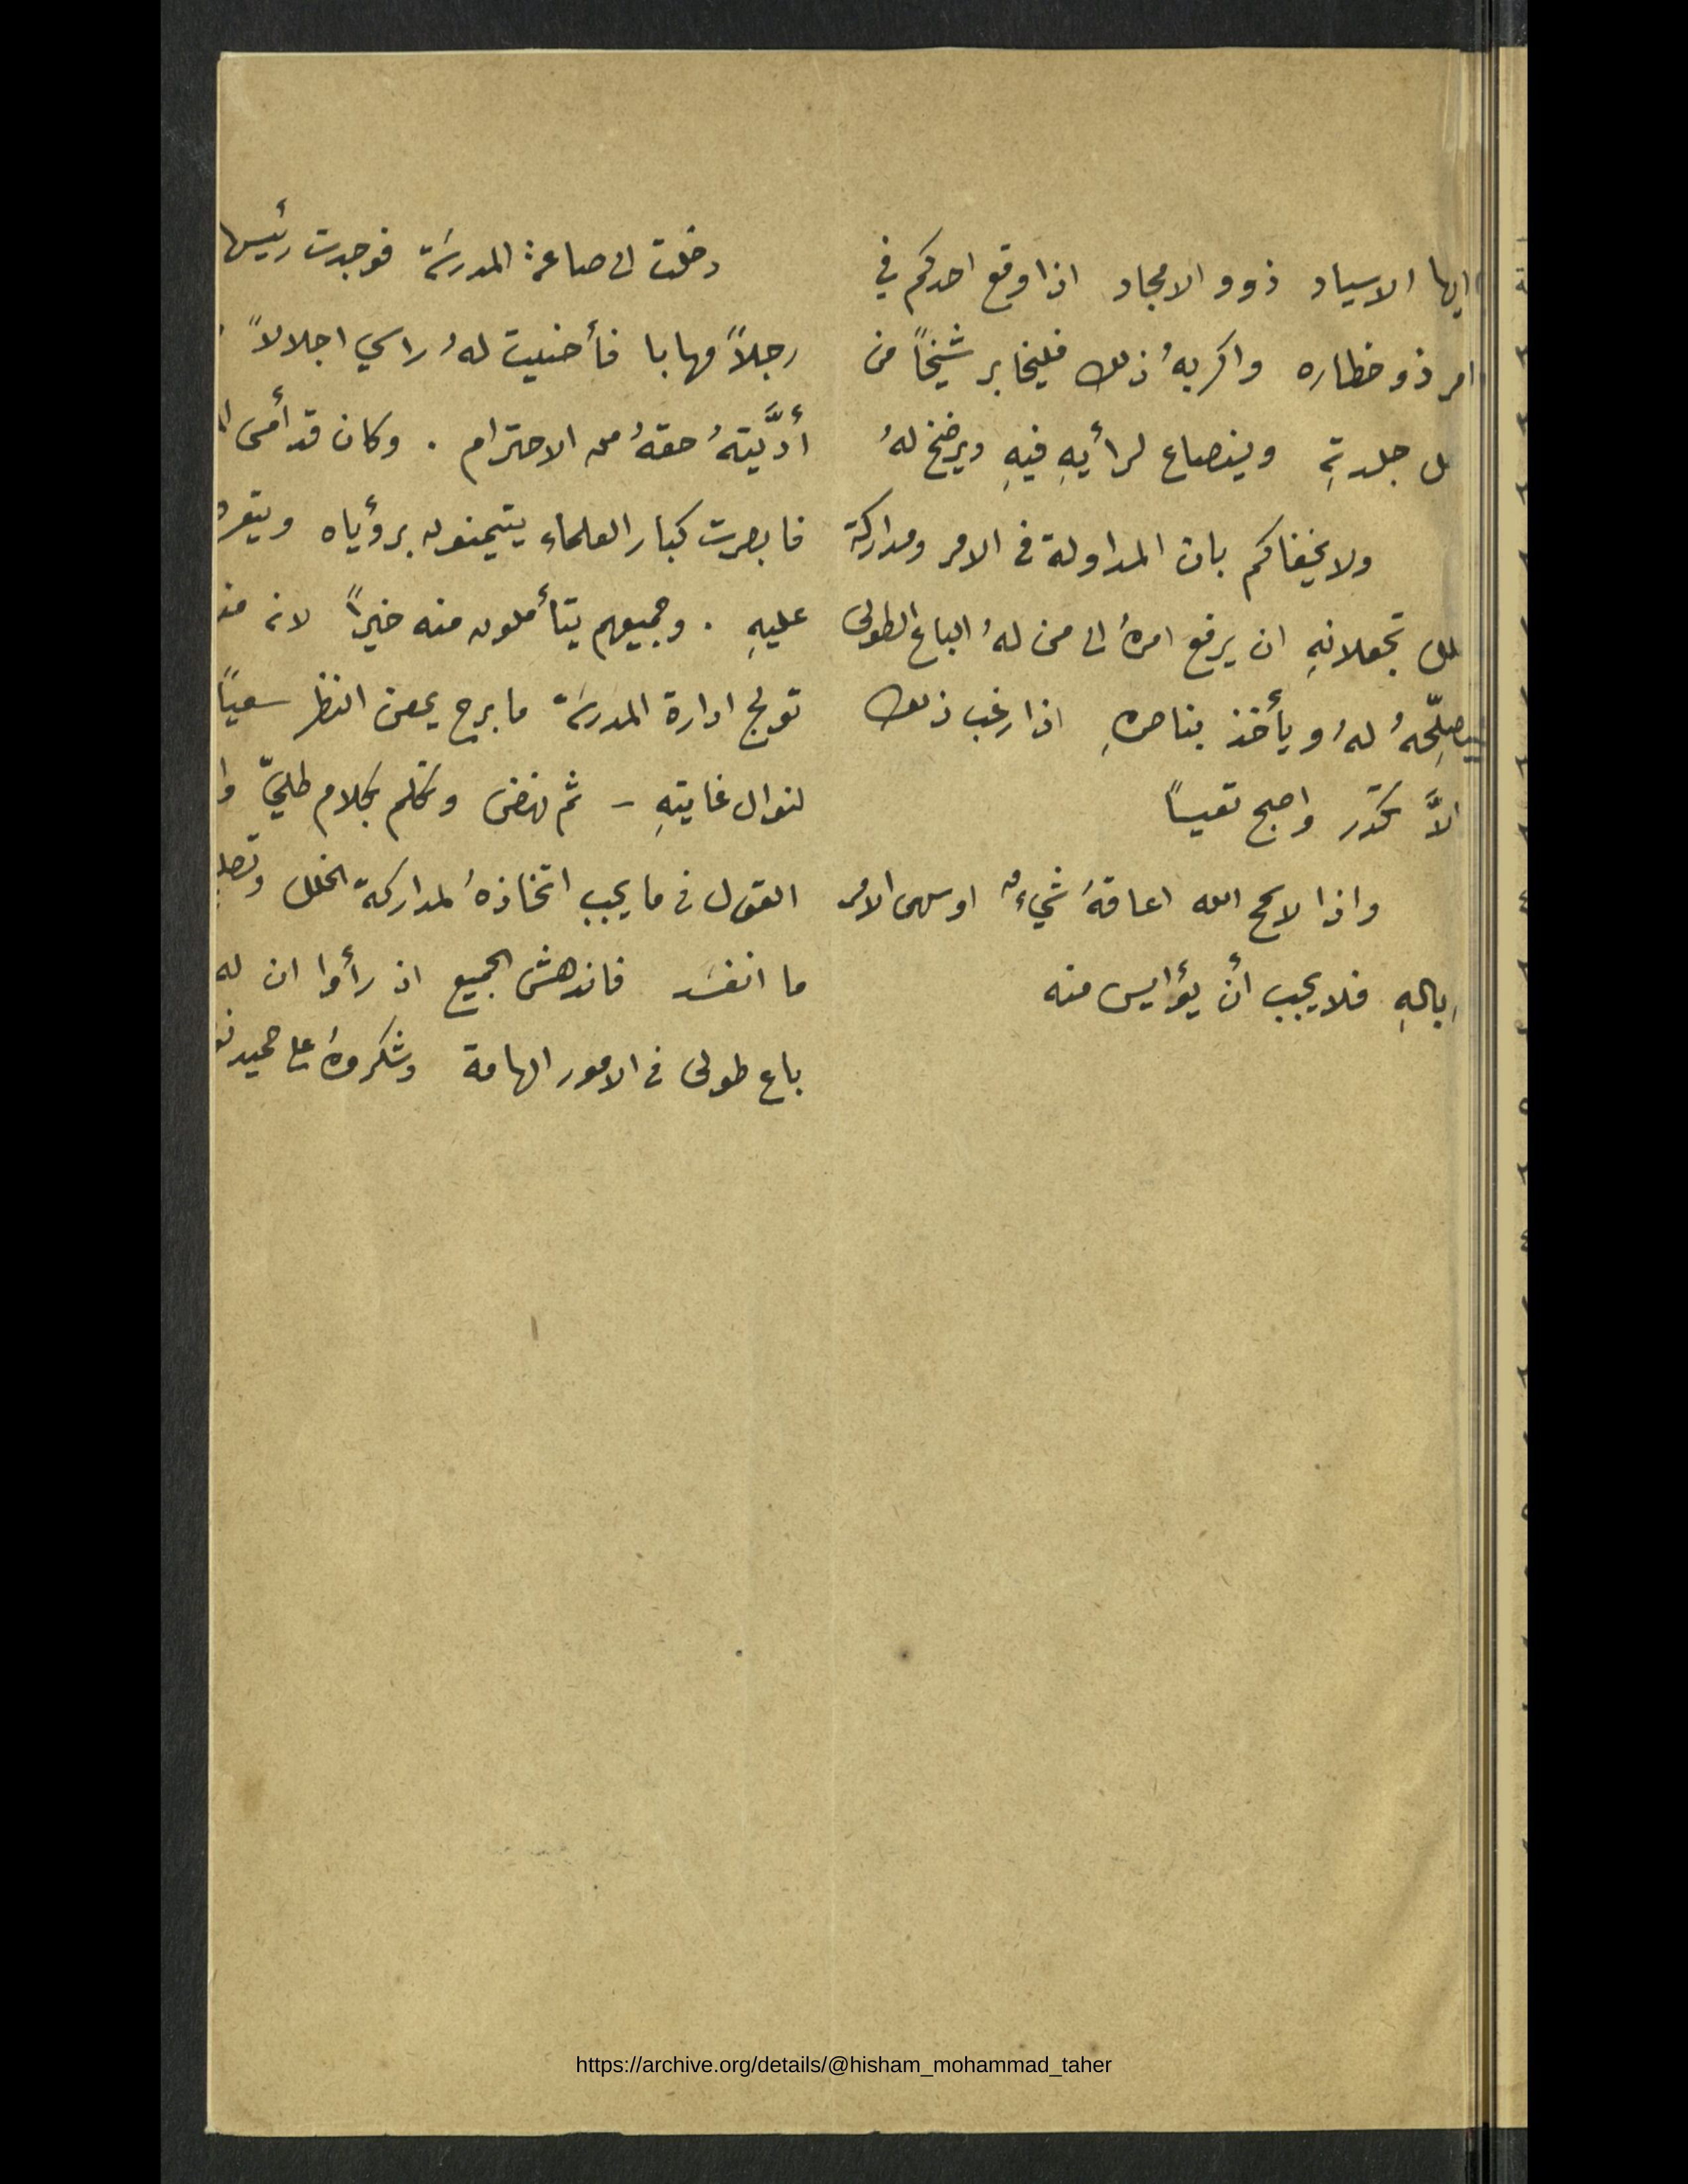 ايها الاسياد ذوو الامجاد اذا وقع احدكم في
امر ذو خطاره واكربهُ ذلك فليخابر شيخاً من
جلدتهِ وينصاع لرأيهِ فيهِ ويرضخ لهُ
ولا يخفاكم بان المداولة في الامر ومداركة
تجعلانهِ ان يرفع امرهُ الى من لهُ الباع الطولى
ليصلِّحهُ لهُ او يأخذ بناصرهِ اذا رغب ذلك
الاَّ تكدّر واصبح تعيساً
واذا لا سمح الله اعاقهُ شيءٌ او سهى الامر
بالهِ فلا يجب أن يؤايس منه
دخلت الى صاعة المدرسَة فوجدت رئيسها
رجلاً مهابا فأحنيت لهُ راسي اجلالاً
أدَّيتهُ حقهُ من الاحترام . وكان قد أمسى
فابصرت كبار العلماء يتيمنون برؤياه
عليهِ . وجميعهم يتأملون منه خيراً لانه
تولج ادارة المدرسَة ما برح يمعن النظر سعياً
لنوال غايتهِ - ثم نهض وتكلم بكلام طليّ
القول في ما يجب اتخاذهُ لمداركة الخلل
ما انفسَد فاندهش الجميع اذ رأوا ان له
باع طولى في الامور الهامة وشكروهُ على حميد
https://archive.org/details/@hisham_mohammad_taher